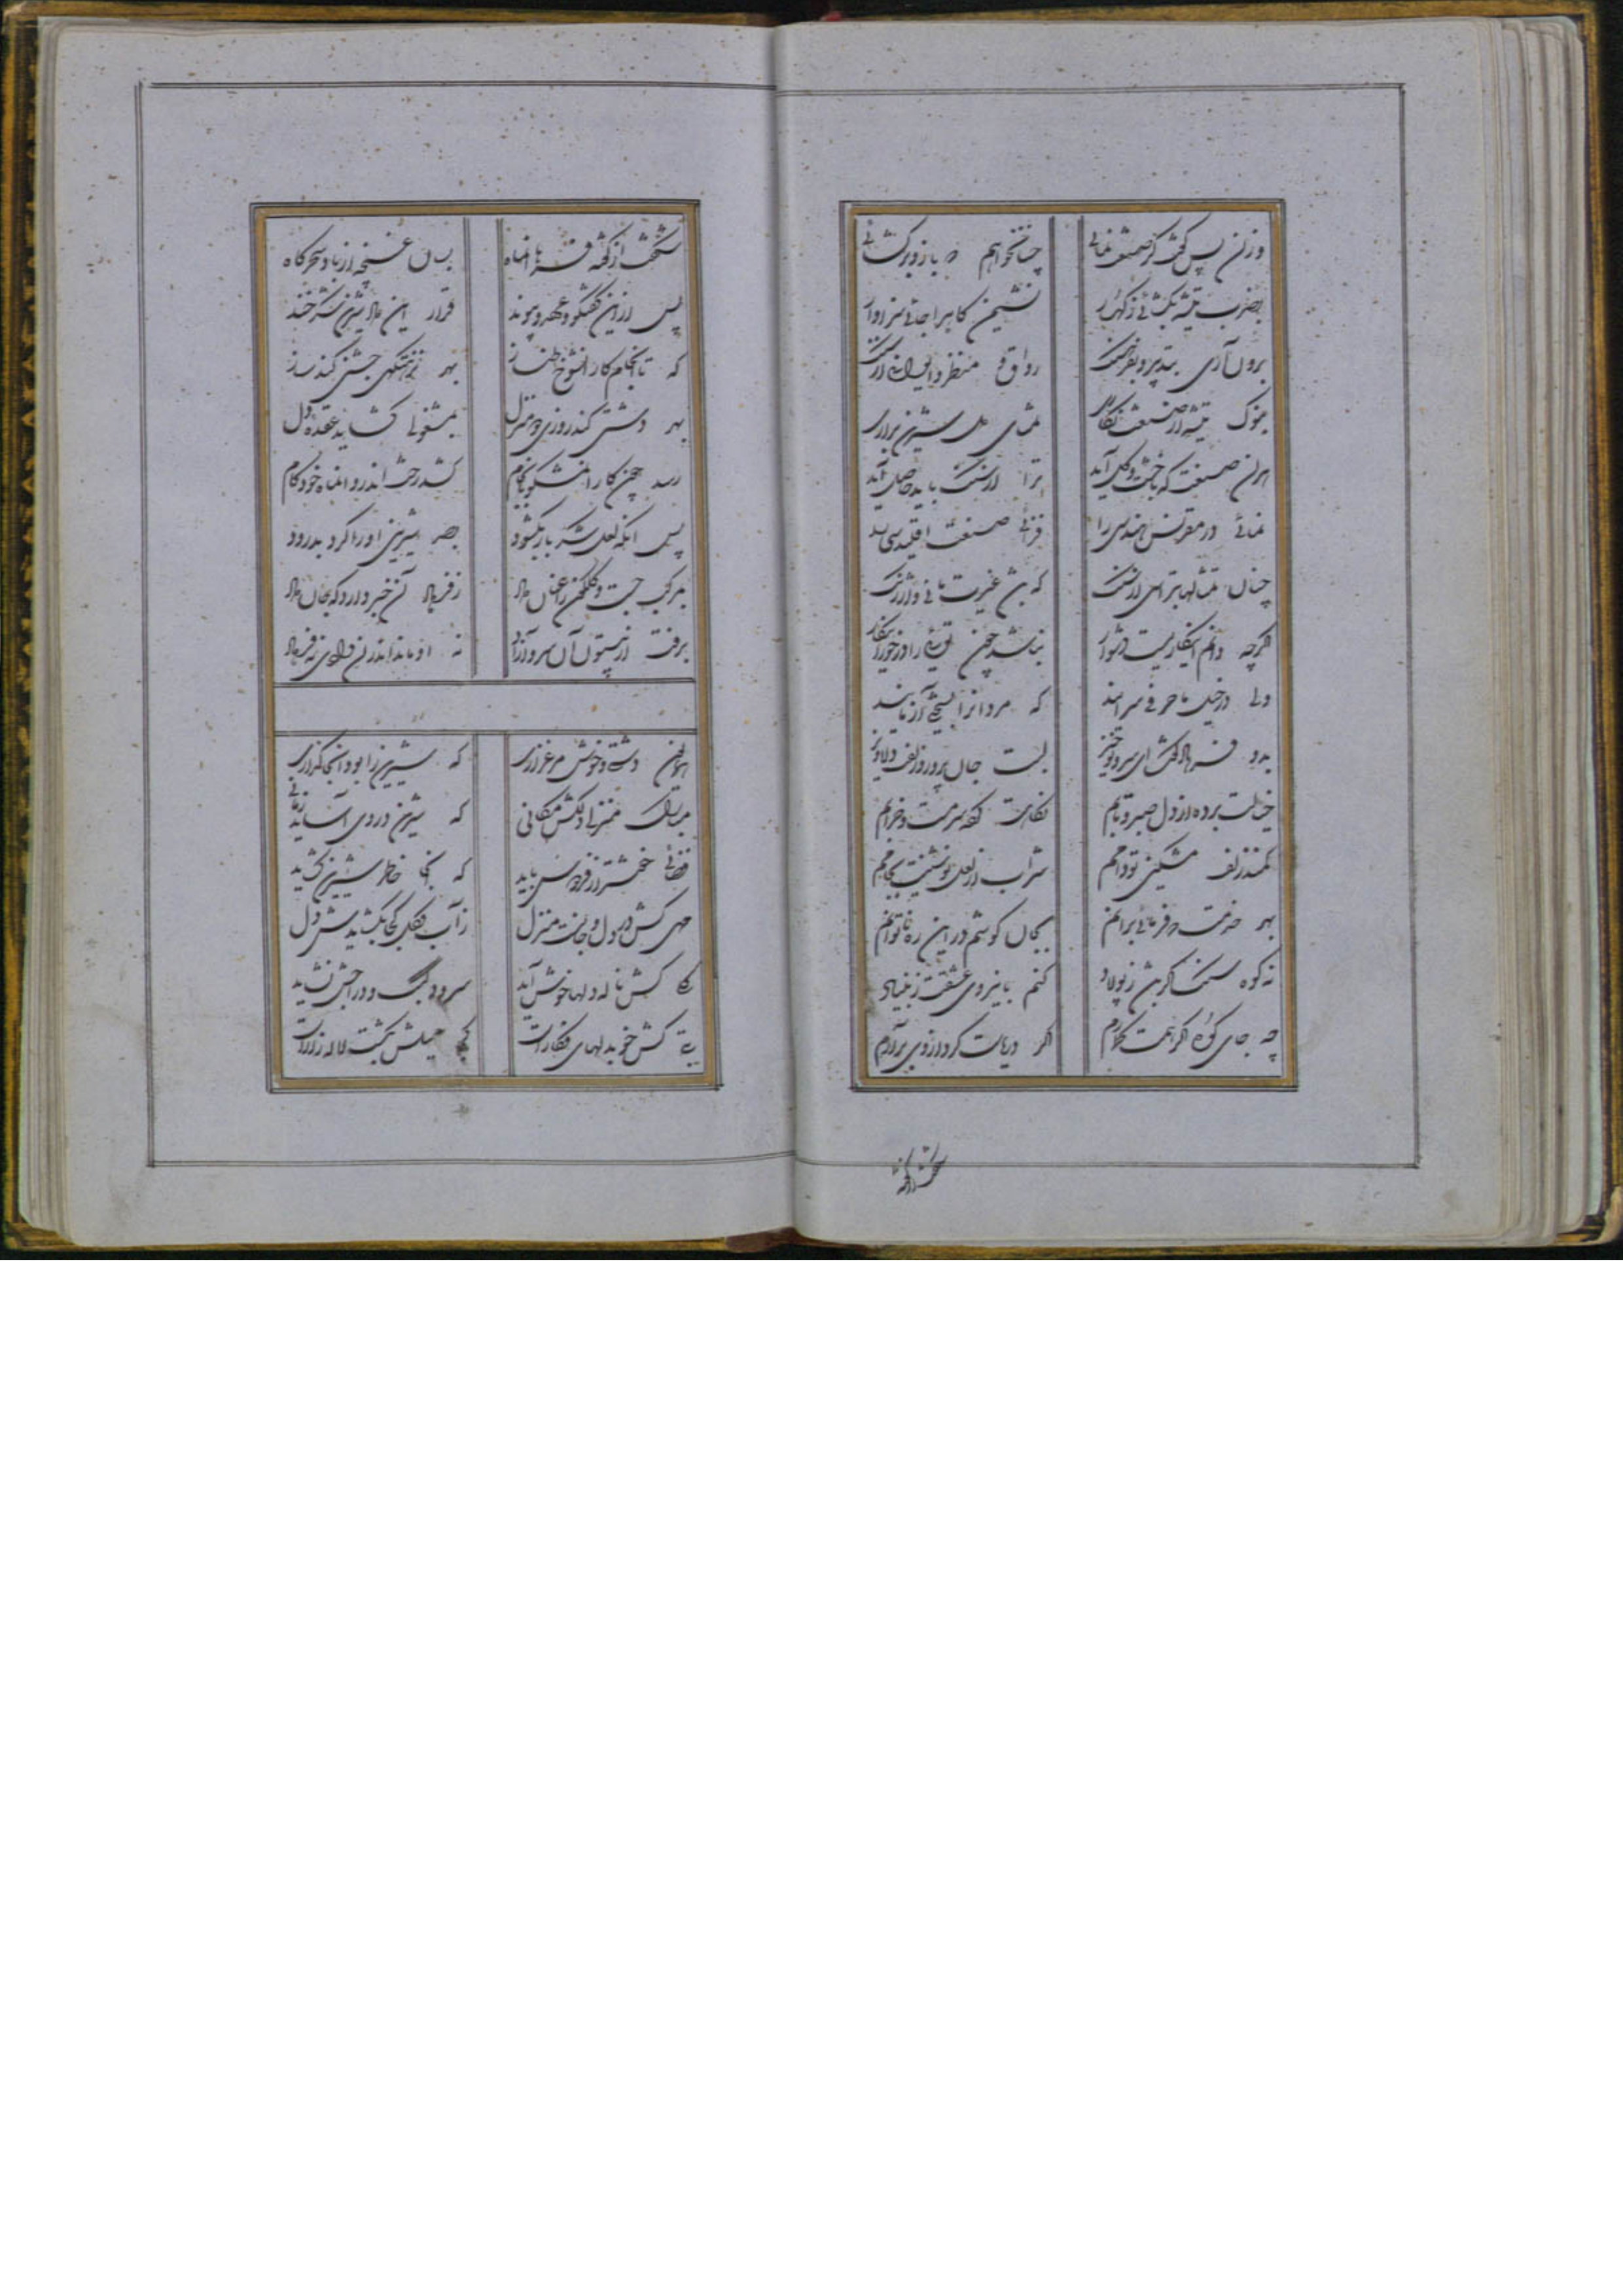 وزان پس گفت کز صنعت نمائی چنانخواهم که بازو برگشائی
بضرب تیشه بگشائی ز کهسار نشیمن گاهی را جای سزاوار
برون آری بتدبیر و بفرهنگ رواق و منظر و ایوان از سنگ
بنوک تیشه از صنعت نگاری
هران صنعت که با خشت و گل آید ترا از سنگ باید حاصل آید
نمائی در مقرنس هندسی را صنعت اقلیدسی را
چنان تمثالها بتراشی از سنگ که باشد غیرت مانی و ارژنگ
اگرچه دانم اینکاریست دشوار نباشد چون توئی را در خور اینکار
ولی که مردانرا
بدو فرهاد گفت ای سرو نوخیز لبت جان پرور و زلفت دلاویز
خیالت برده از دل صبر و تابم نگاهت کرده سرمست و خرابم
کمند زلف مشکین تو دامم شراب از لعل نوشینت بجامم
بهر خدمت که فرمائی برانم بجان کوشم در این ره تا توانم
نه کوه سنگ اگر باشد ز پولاد کنم با نیروی عشقت ز بنیاد
چه جای کوه اگر همت گمارم اگر دریاست گرد از وی برآرم
شکفت از گفته فرهاد آنماه بسان غنچه از باد سحرگاه
پس از این گفتگو و عهد و پیوند قرار این داد شیرین شکرخند
که تا انجام کار آنشوخ طناز بهر نزهتگهی جشنی کند ساز
بهر دشتی کند روزی دو منزل بمشغولی گشاید عقده دل
رسد چون کار آن مشکو بانجام کشد رخت اندرو آنماه خودکام
پس آنگه لعل شکر بار بگشود بصد شیرینی او را کرد بدرود
بمرکب جست و گلگون را عنان داد ز فرهاد آن خبر دارد که جان داد
برفت از بیستون آن سرو آزاد نه او ماند اندران وادی نه فرهاد
همایون دشت و خوش مرغزاری که شیرین را بود آنجا گذاری
مبارک منزلی دلکش مکانی که شیرین در وی آساید زمانی
فضائی خوشتر از فردوس باید که آنجا خاطر شیرین گشاید
مهی کش در دل و جانست منزل ز آب و گل کجا بگشایدش دل
کجا کش ناله دلها خوش آید سرود کبک و دراجش نشاید
بتی کش خو بدلهای فکار است کجا میلش بگشت لاله زار است